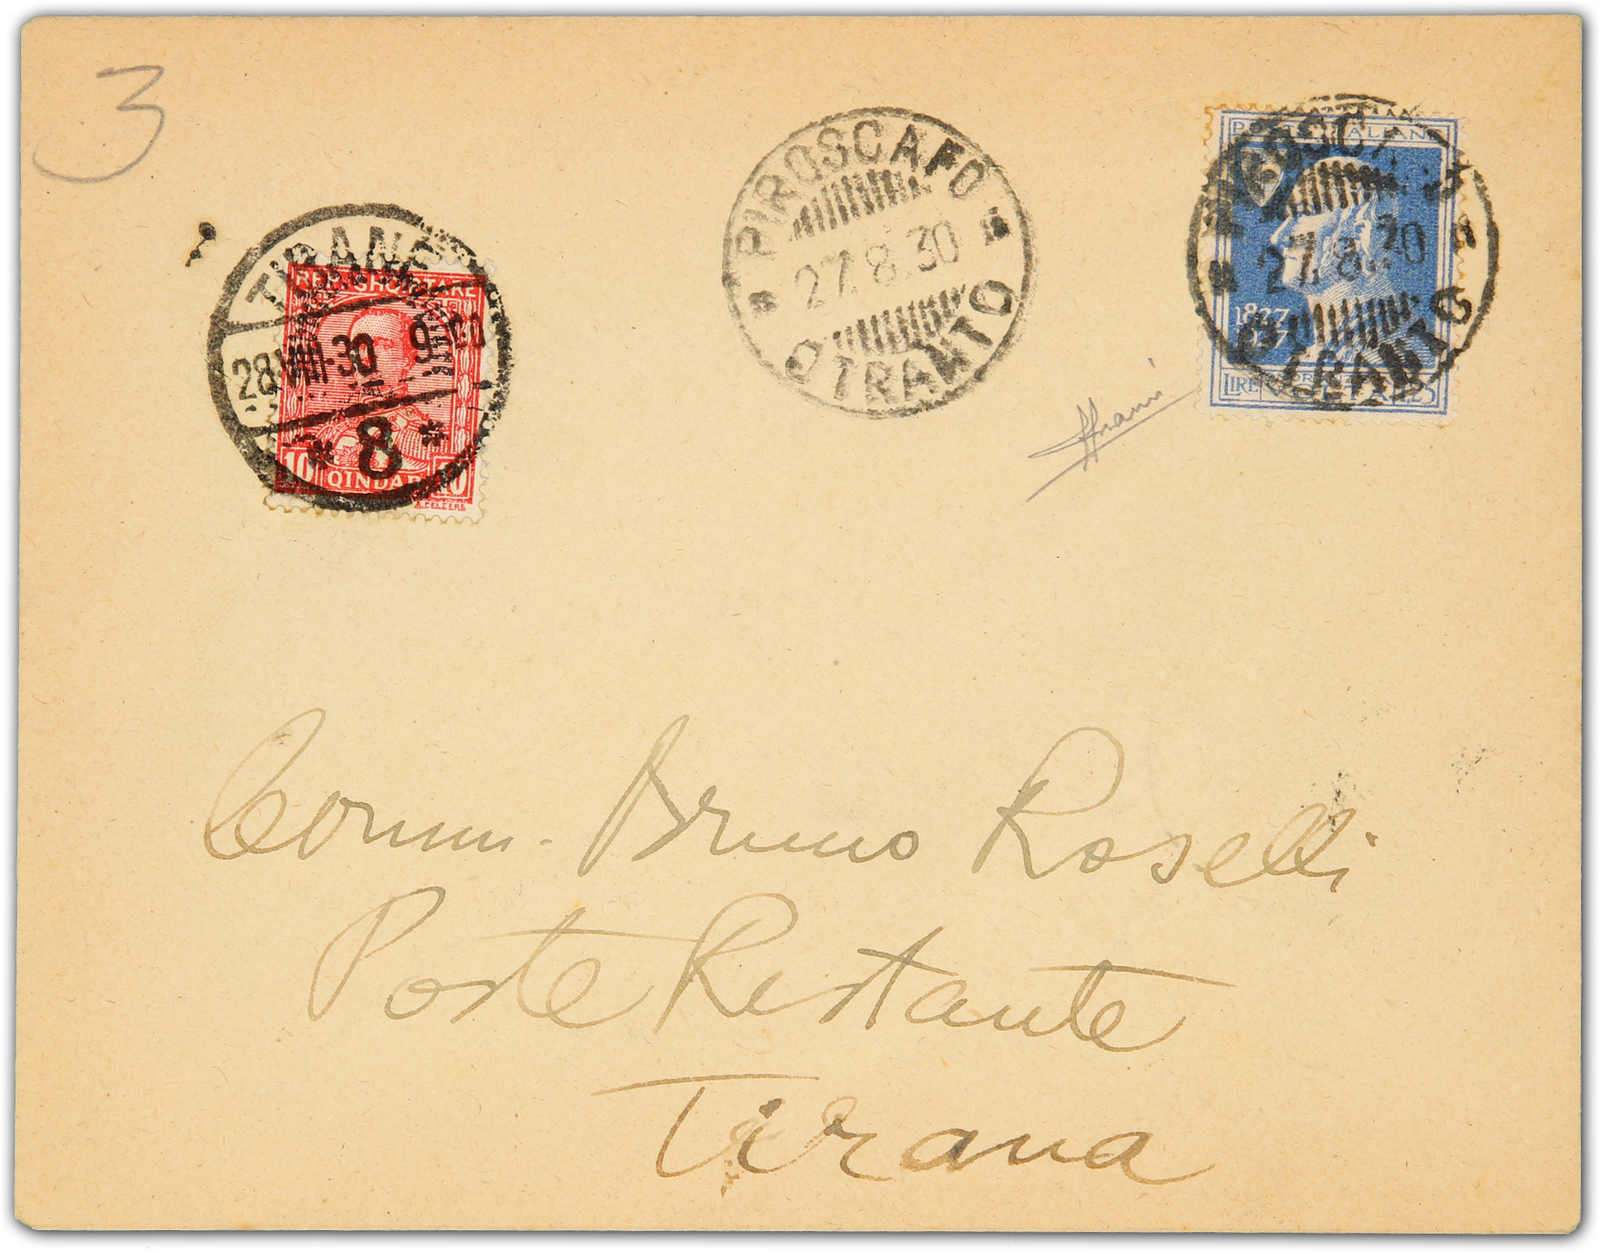 3
PIROSCAFO
27.8.30
OTRANTO
PIROSCAFO
27.8.30
OTRANTO
1827
LIRE
TIRANE
28.VIII.30 9-00
* 8 *
SHQIPTARE
10 QINDAR 10
Comm. Bruno Roselli
Poste Restante
Tirana